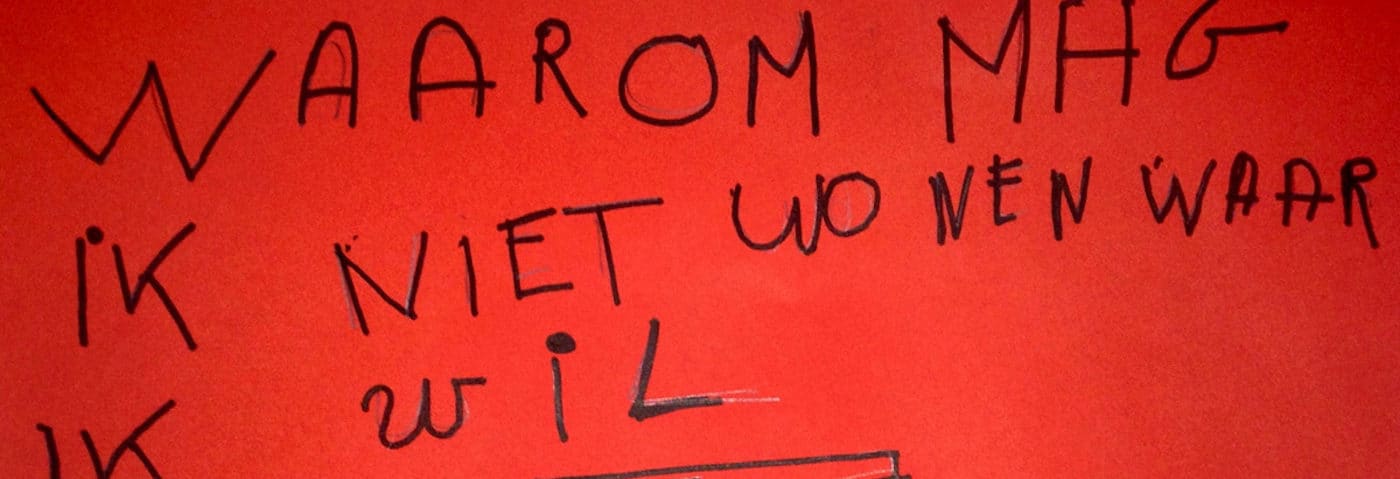 WAAROM MAG
iK NIET WONEN WAAR
iK WiL